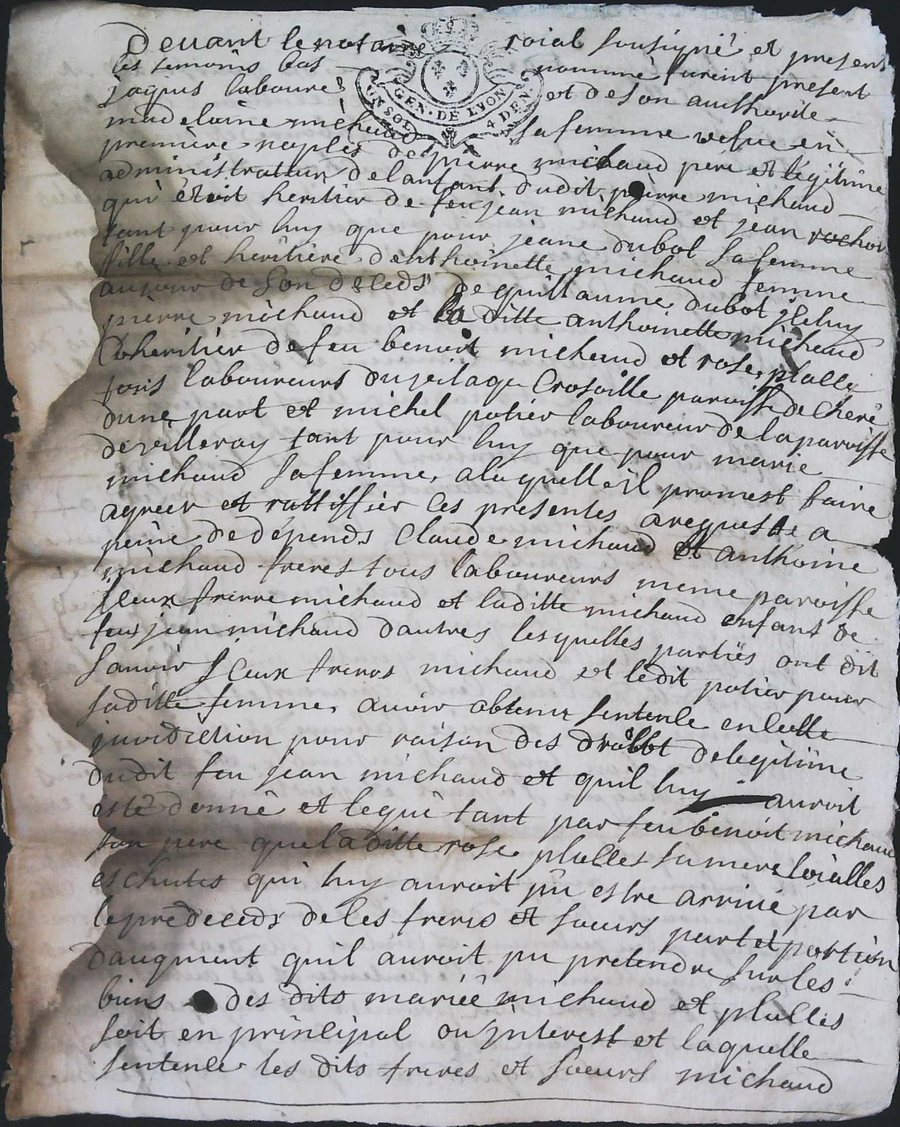 Devant le notaire roial sousigné et present
les temoins bas nommé furent present
jaques laboure et de son authorité
GEN. DE LYON
UN SOL 4 DEN
madelaine michaud sa femme vefve en
première noples de pierre michaud pere et légitime
administrateur de lanfant dudit pierre michaud
qui étoit heritier de feu jean michaud et jean rochon
tant pour luy que pour jeane dubot sa femme
fille et heritiere danthoinette michaud femme
au jour de son deceds de guillaume dubot jceluy
pierre michaud et la ditte anthoinette michaud
Coheritier de feu benoit michaud et rose plasse
tous laboureurs du vilage Crosville paroisse de Cheré
dune part et michel potier laboureur de la paroisse
de villeray tant pour luy que pour marie
michaud sa femme, a laquelle il promest faire
agreer et rattiffier ces presentes a requeste a
peine de dépends Claude michaud et anthoine
michaud freres tous laboureurs meme paroisse
jceux frerre michaud et laditte michaud enfant de
feu jean michaud dautres lesquelles parties ont dit
sauoir jceux freres michaud et ledit potier pour
saditte femme, auoir obtenu sentence en cette
juridiction pour raison des droits de legitime
dudit feu jean michaud et quil luy auroit
esté donné et legué tant par feu benoit michaud
son pere que laditte rose plalles sa mere
eschutes qui luy auroit pu estre arriué par
le prédeceds de ses freres et soeurs part et portion
daugment quil auroit pu pretendre sur les
biens des dits mariés michaud et plalles
soit en principal ou jnterest et laquelle
sentence les dits freres et soeurs michaud